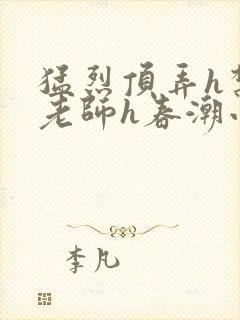 猛烈頂弄h
老師h春潮
李凡